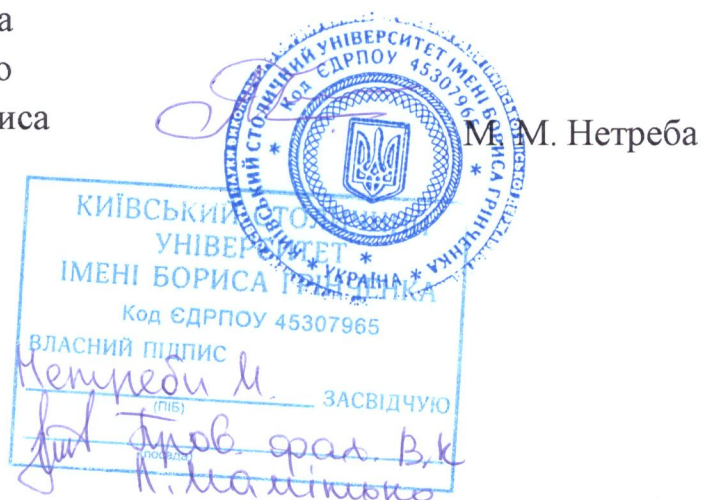 а
о
иса
М. М. Нетреба
КИЇВСЬКИЙ СТОЛИЧНИЙ УНІВЕРСИТЕТ ІМЕНІ БОРИСА ГРІНЧЕНКА
* УКРАЇНА *
Код ЄДРПОУ 45307965
КИЇВСЬКИЙ СТОЛИЧНИЙ
УНІВЕРСИТЕТ
ІМЕНІ БОРИСА ГРІНЧЕНКА
Код ЄДРПОУ 45307965
ВЛАСНИЙ ПІДПИС
Нетреби М.
ЗАСВІДЧУЮ
(ПІБ)
Пров. фах. В.К
(посада)